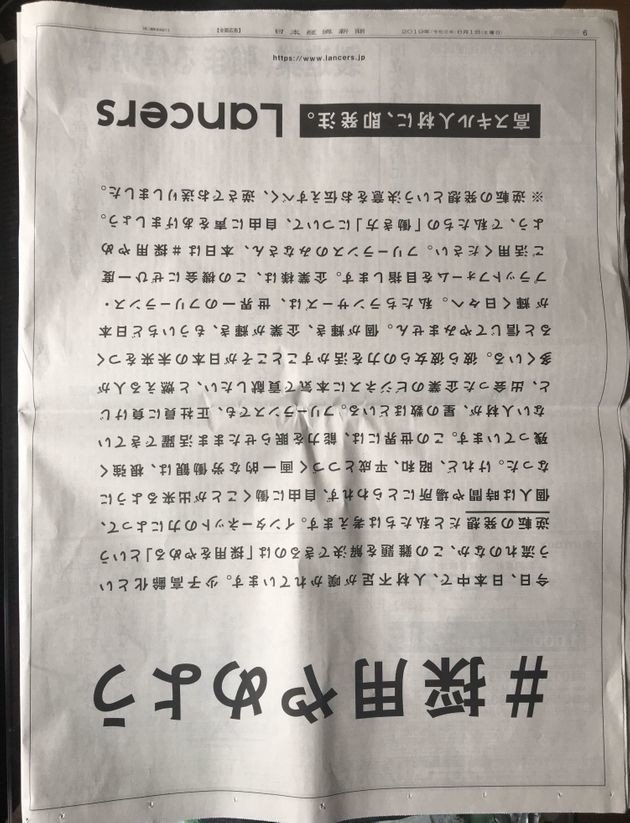 【全面広告】 日本経済新聞 2019年(令和元年)6月1日(土曜日) 6
https://www.lancers.jp
#採用やめよう
今日、日本中で、人材不足が嘆かれています。少子高齢化とい
う流れのなか、この難題を解決できるのは「採用をやめる」という
逆転の発想だと私たちは考えます。インターネットの力によって、
個人は時間や場所にとらわれず、自由に働くことが出来るように
なった。けれど、昭和、平成とつづく画一的な労働観は、根強く
残っています。この世界には、能力を眠らせたまま活躍できてい
ない人材が、星の数ほどいる。フリーランスでも、正社員に負けじ
と、出会った企業のビジネスに本気で貢献したい、と燃える人が
多くいる。彼ら彼女らの力を活かすことこそが日本の未来をつく
ると信じてやみません。個が輝き、企業が輝き、もういちど日本
が輝く日々へ。私たちランサーズは、世界一のフリーランス・
プラットフォームを目指します。企業様は、この機会にぜひ一度
ご活用ください。フリーランスのみなさん、本日は#採用やめ
よう、で私たちの「働き方」について、自由に声をあげましょう。
※逆転の発想という決意をお伝えすべく、逆さでお送りしました。
高スキル人材に、即発注。 Lancers